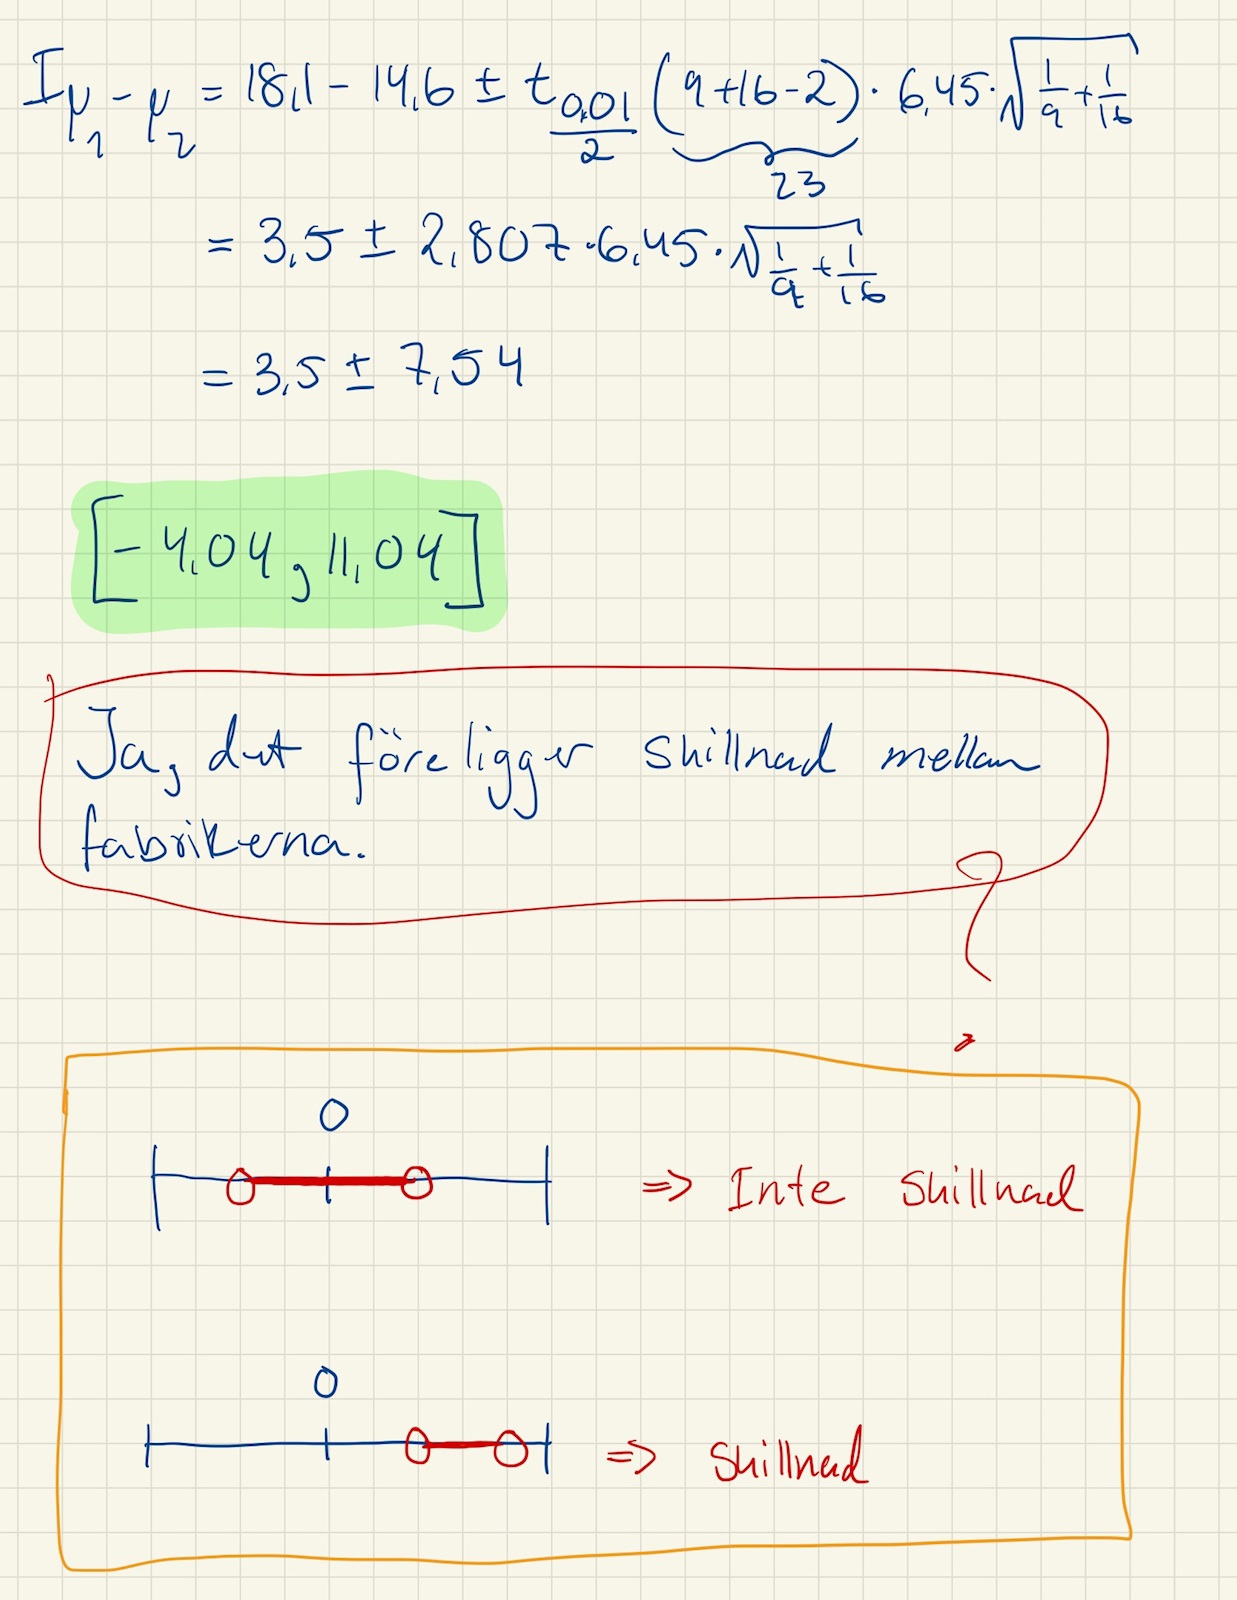 I μ₁ - μ₂ = 18,1 - 14,6 ± t 0,01/2 (9+16-2) · 6,45 · √(1/9 + 1/16)
23
= 3,5 ± 2,807 · 6,45 · √(1/9 + 1/16)
= 3,5 ± 7,54
[- 4,04 , 11,04]
Ja, det föreligger skillnad mellan
fabrikerna.
?
0
=> Inte skillnad
0
=> skillnad